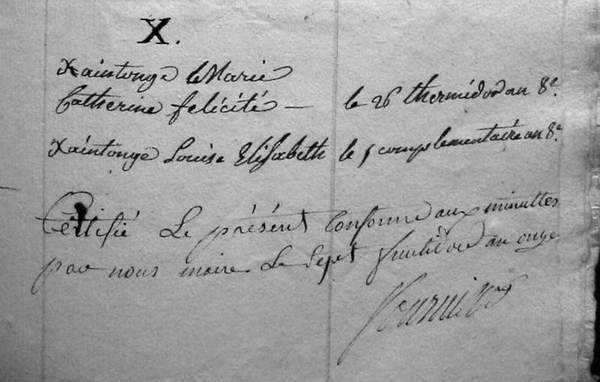 X.
Xaintonge Marie
Catherine félicité — le 26 thermidor an 8e.
Xaintonge Louise Elisabeth le 5 complementaire an 8e.
Certifié Le présént Conforme aux minuttes
par nous maire Le Sept fructidor an onze